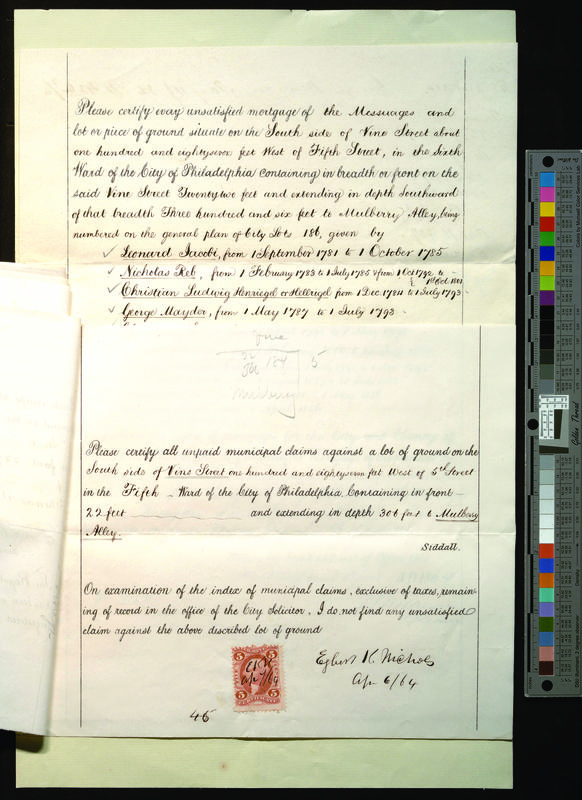 Please certify every unsatisfied mortgage of the Messuages and
lot or piece of ground situate on the South side of Vine Street about
one hundred and eightyseven feet West of Fifth Street, in the Sixth
Ward of the City of Philadelphia Containing in breadth or front on the
said Vine Street Twentytwo feet and extending in depth Southward
of that breadth Three hundred and six feet to Mulberry Alley, being
numbered on the general plan of City Lots 186, given by
✓ Leonard Jacobi, from 1 September 1781 to 1 October 1785
✓ Nicholas Reb, from 1 February 1783 to 1 July 1785 & from 1 Oct 1792 to
✓ Christian Ludwig Henriegel or Hellrigel from 1 Dec 1784 to 1 July 1793
✓ George Mayder, from 1 May 1787 to 1 July 1793
Vine
22
184 5
Mulberry
Please certify all unpaid municipal claims against a lot of ground on the
South side of Vine Street one hundred and eightyseven feet West of 5th Street
in the Fifth Ward of the City of Philadelphia, Containing in front
22 feet and extending in depth 306 feet to Mulberry
Alley.
Siddall.
On examination of the index of municipal claims, exclusive of taxes, remain-
ing of record in the office of the City Solicitor, I do not find any unsatisfied
claim against the above described lot of ground
Egbert K. Nichols
Apr 6/64
5 5
Apr 7/64
5 5
CERTIFICATE
45